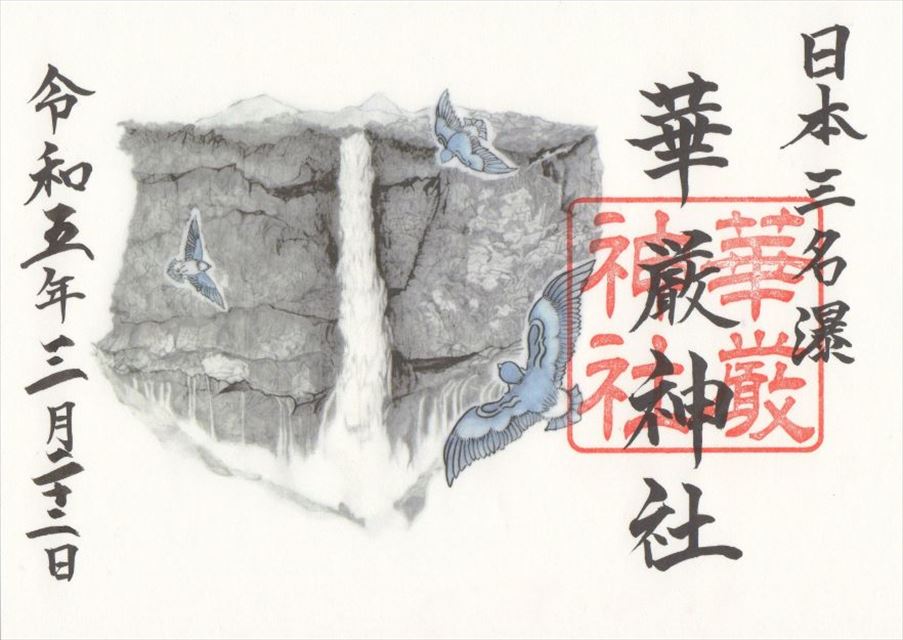 日本三名瀑
華厳神社
華厳
神社
令和五年三月二十二日